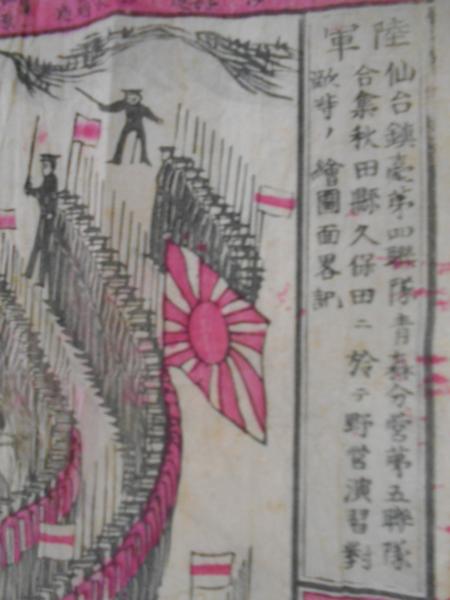 陸軍
仙台鎮臺第四聯隊青森分営第五聯隊
合集秋田縣久保田ニ於テ野営演習對
敵時ノ繪圖面畧記